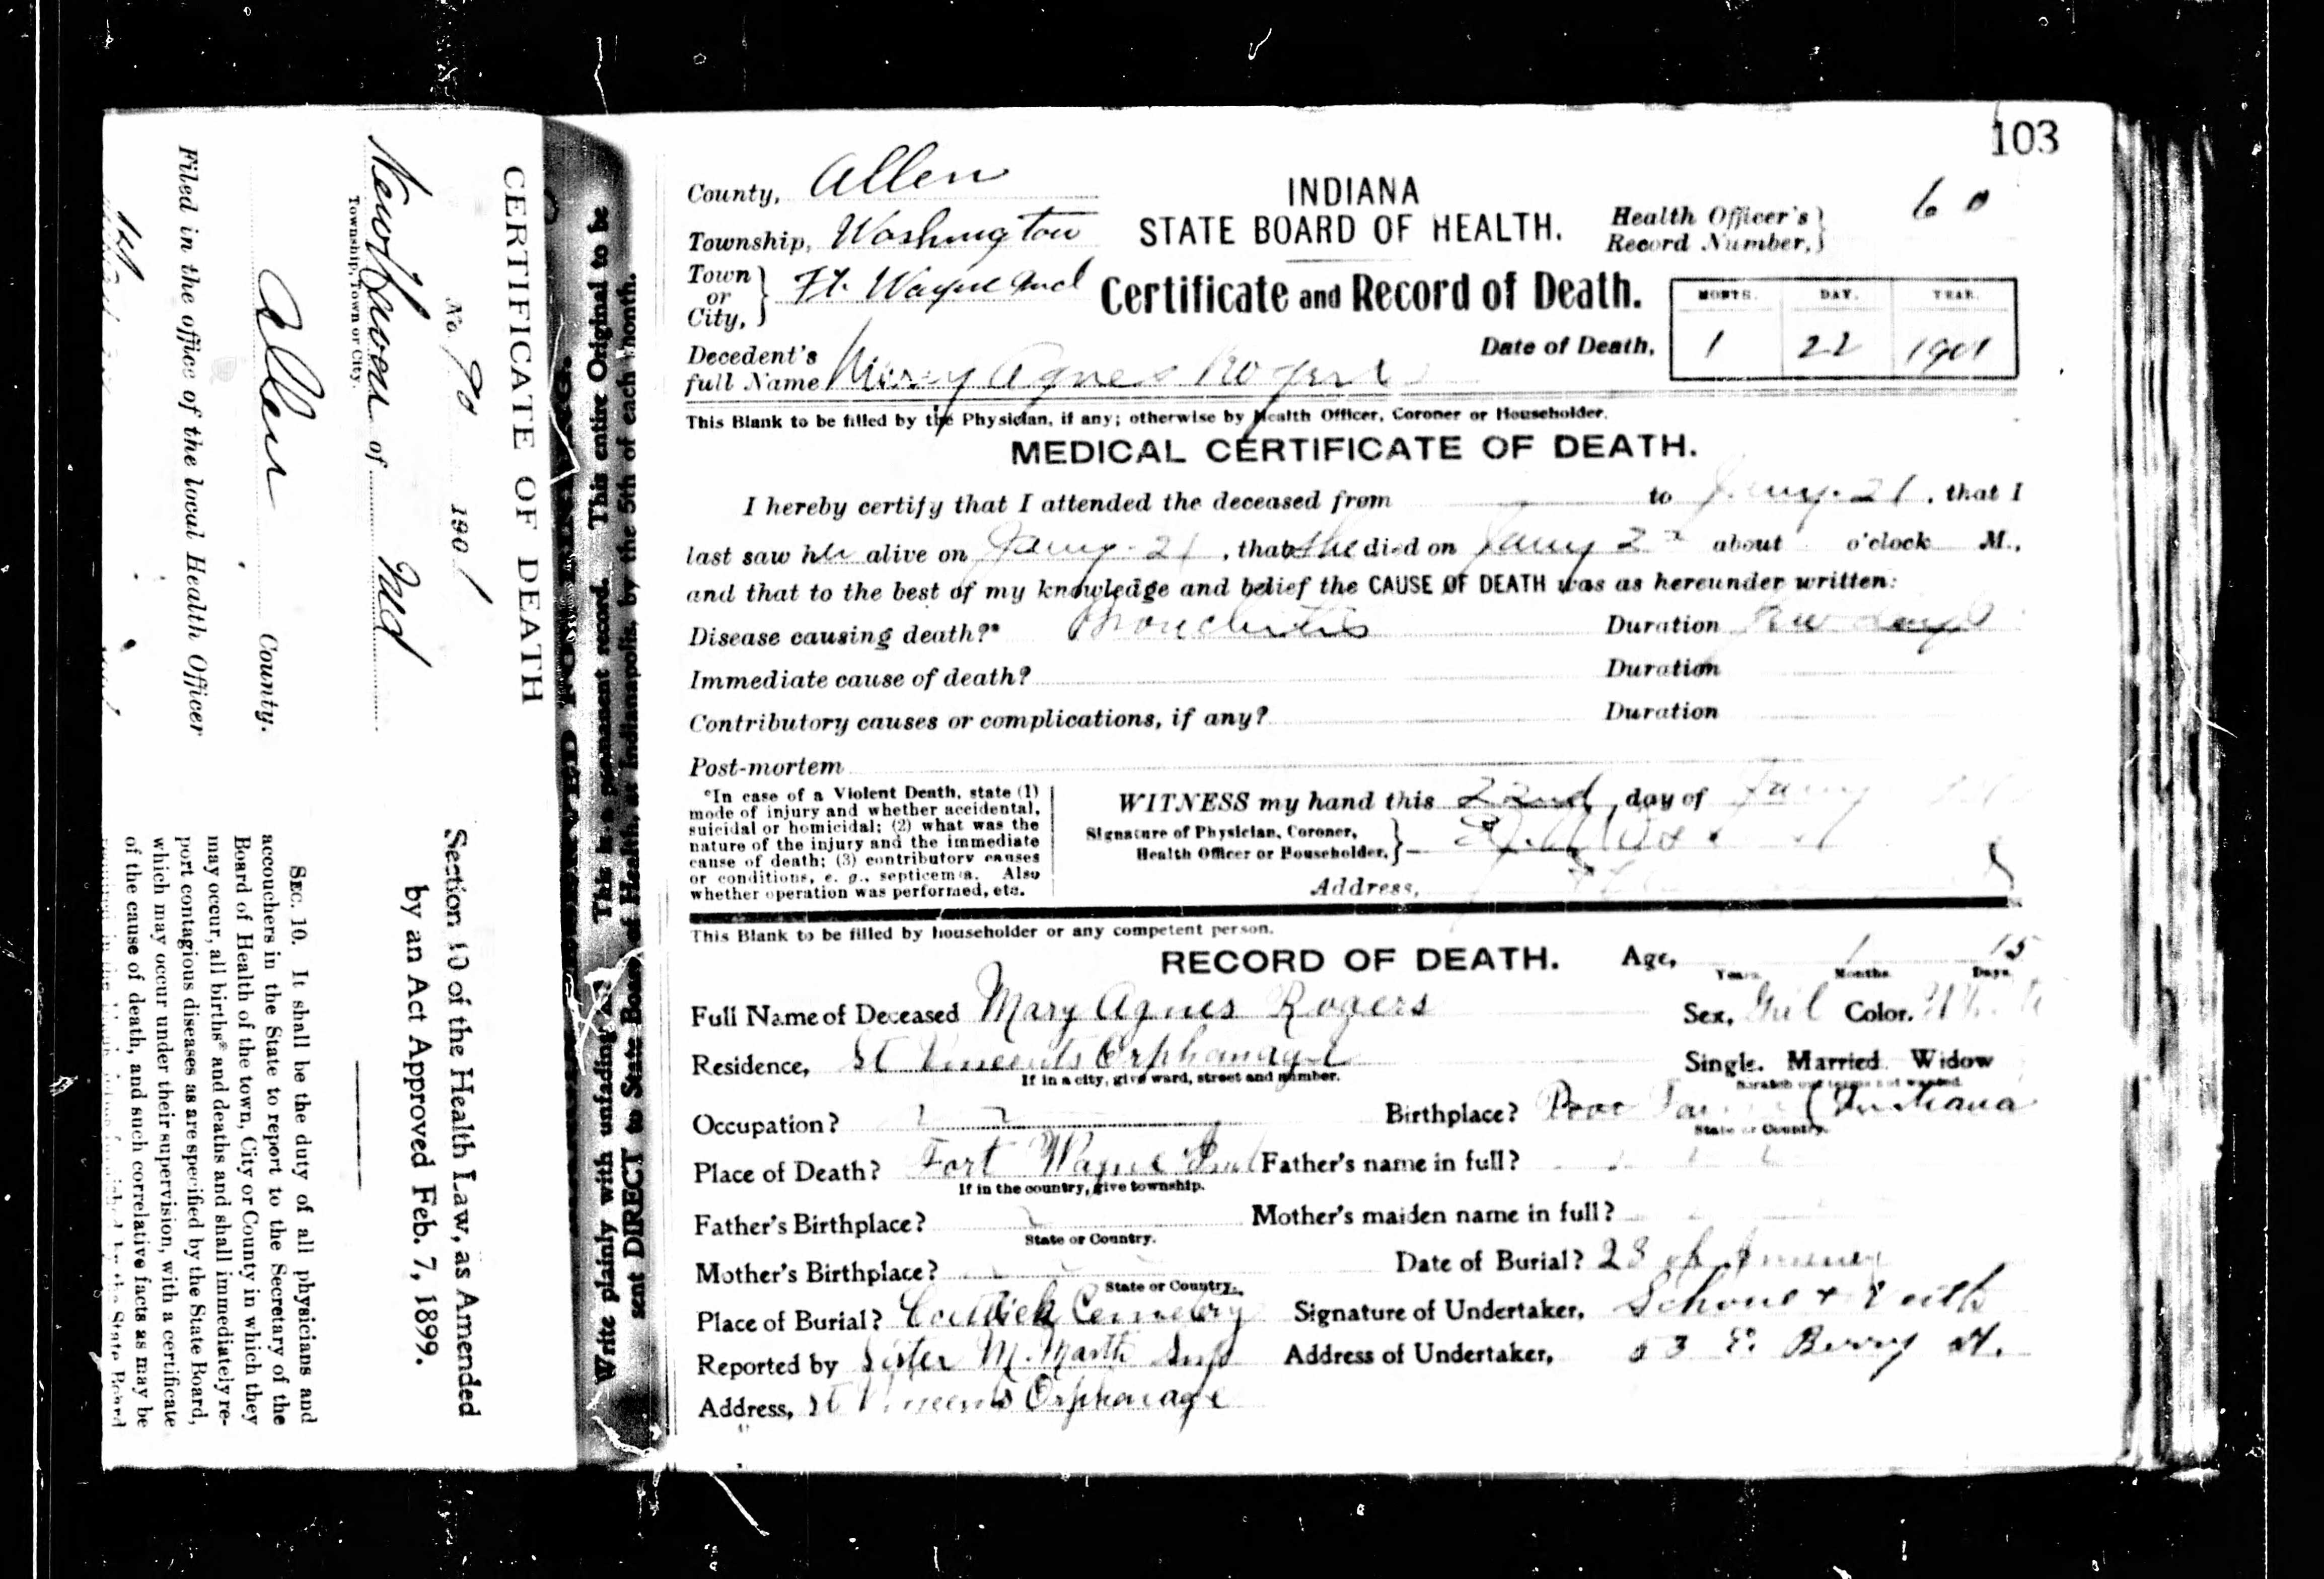 103
County, Allen
INDIANA
STATE BOARD OF HEALTH.
Health Officer's
Record Number,
60
Township, Washington
Town
or
City,
Ft. Wayne Ind
Certificate and Record of Death.
MONTH. DAY. YEAR.
Date of Death, 1 22 1901
Decedent's
full Name Mary Agnes Rogers
This Blank to be filled by the Physician, if any; otherwise by Health Officer, Coroner or Householder.
MEDICAL CERTIFICATE OF DEATH.
I hereby certify that I attended the deceased from to Jany. 21, that I
last saw her alive on Jany. 21, that she died on Jany 22 about o'clock M.,
and that to the best of my knowledge and belief the CAUSE OF DEATH was as hereunder written:
Disease causing death?* Bronchitis Duration few days
Immediate cause of death? Duration
Contributory causes or complications, if any? Duration
Post-mortem
*In case of a Violent Death, state (1)
mode of injury and whether accidental,
suicidal or homicidal; (2) what was the
nature of the injury and the immediate
cause of death; (3) contributory causes
or conditions, e. g., septicemia. Also
whether operation was performed, etc.
WITNESS my hand this 22nd, day of Jany
Signature of Physician, Coroner,
Health Officer or Householder,
Address,
This Blank to be filled by householder or any competent person.
RECORD OF DEATH.
Age, 1 15
Years. Months. Days.
Full Name of Deceased Mary Agnes Rogers
Sex, Girl Color. White
Residence, St Vincents Orphanage
If in a city, give ward, street and number.
Single. Married. Widow
Scratch out terms not wanted.
Occupation?
Birthplace? Indiana
State or Country.
Place of Death? Fort Wayne Ind
If in the country, give township.
Father's name in full?
Father's Birthplace?
State or Country.
Mother's maiden name in full?
Mother's Birthplace?
State or Country.
Date of Burial? 23
Place of Burial? Catholic Cemetery
Signature of Undertaker,
Reported by Sister M. Martha Sup
Address of Undertaker, 53 E. Berry St.
Address, St Vincents Orphanage
Write plainly with unfading ink. This is a permanent record. This entire Original to be
sent DIRECT to State Board of Health, at Indianapolis, by the 5th of each month.
CERTIFICATE OF DEATH
No. 90 1901
New Haven of Ind
Township, Town or City.
Allen County.
Filed in the office of the local Health Officer
Section 10 of the Health Law, as Amended
by an Act Approved Feb. 7, 1899.
SEC. 10. It shall be the duty of all physicians and
accouchers in the State to report to the Secretary of the
Board of Health of the town, City or County in which they
may occur, all births* and deaths and shall immediately re-
port contagious diseases as are specified by the State Board,
which may occur under their supervision, with a certificate
of the cause of death, and such correlative facts as may be